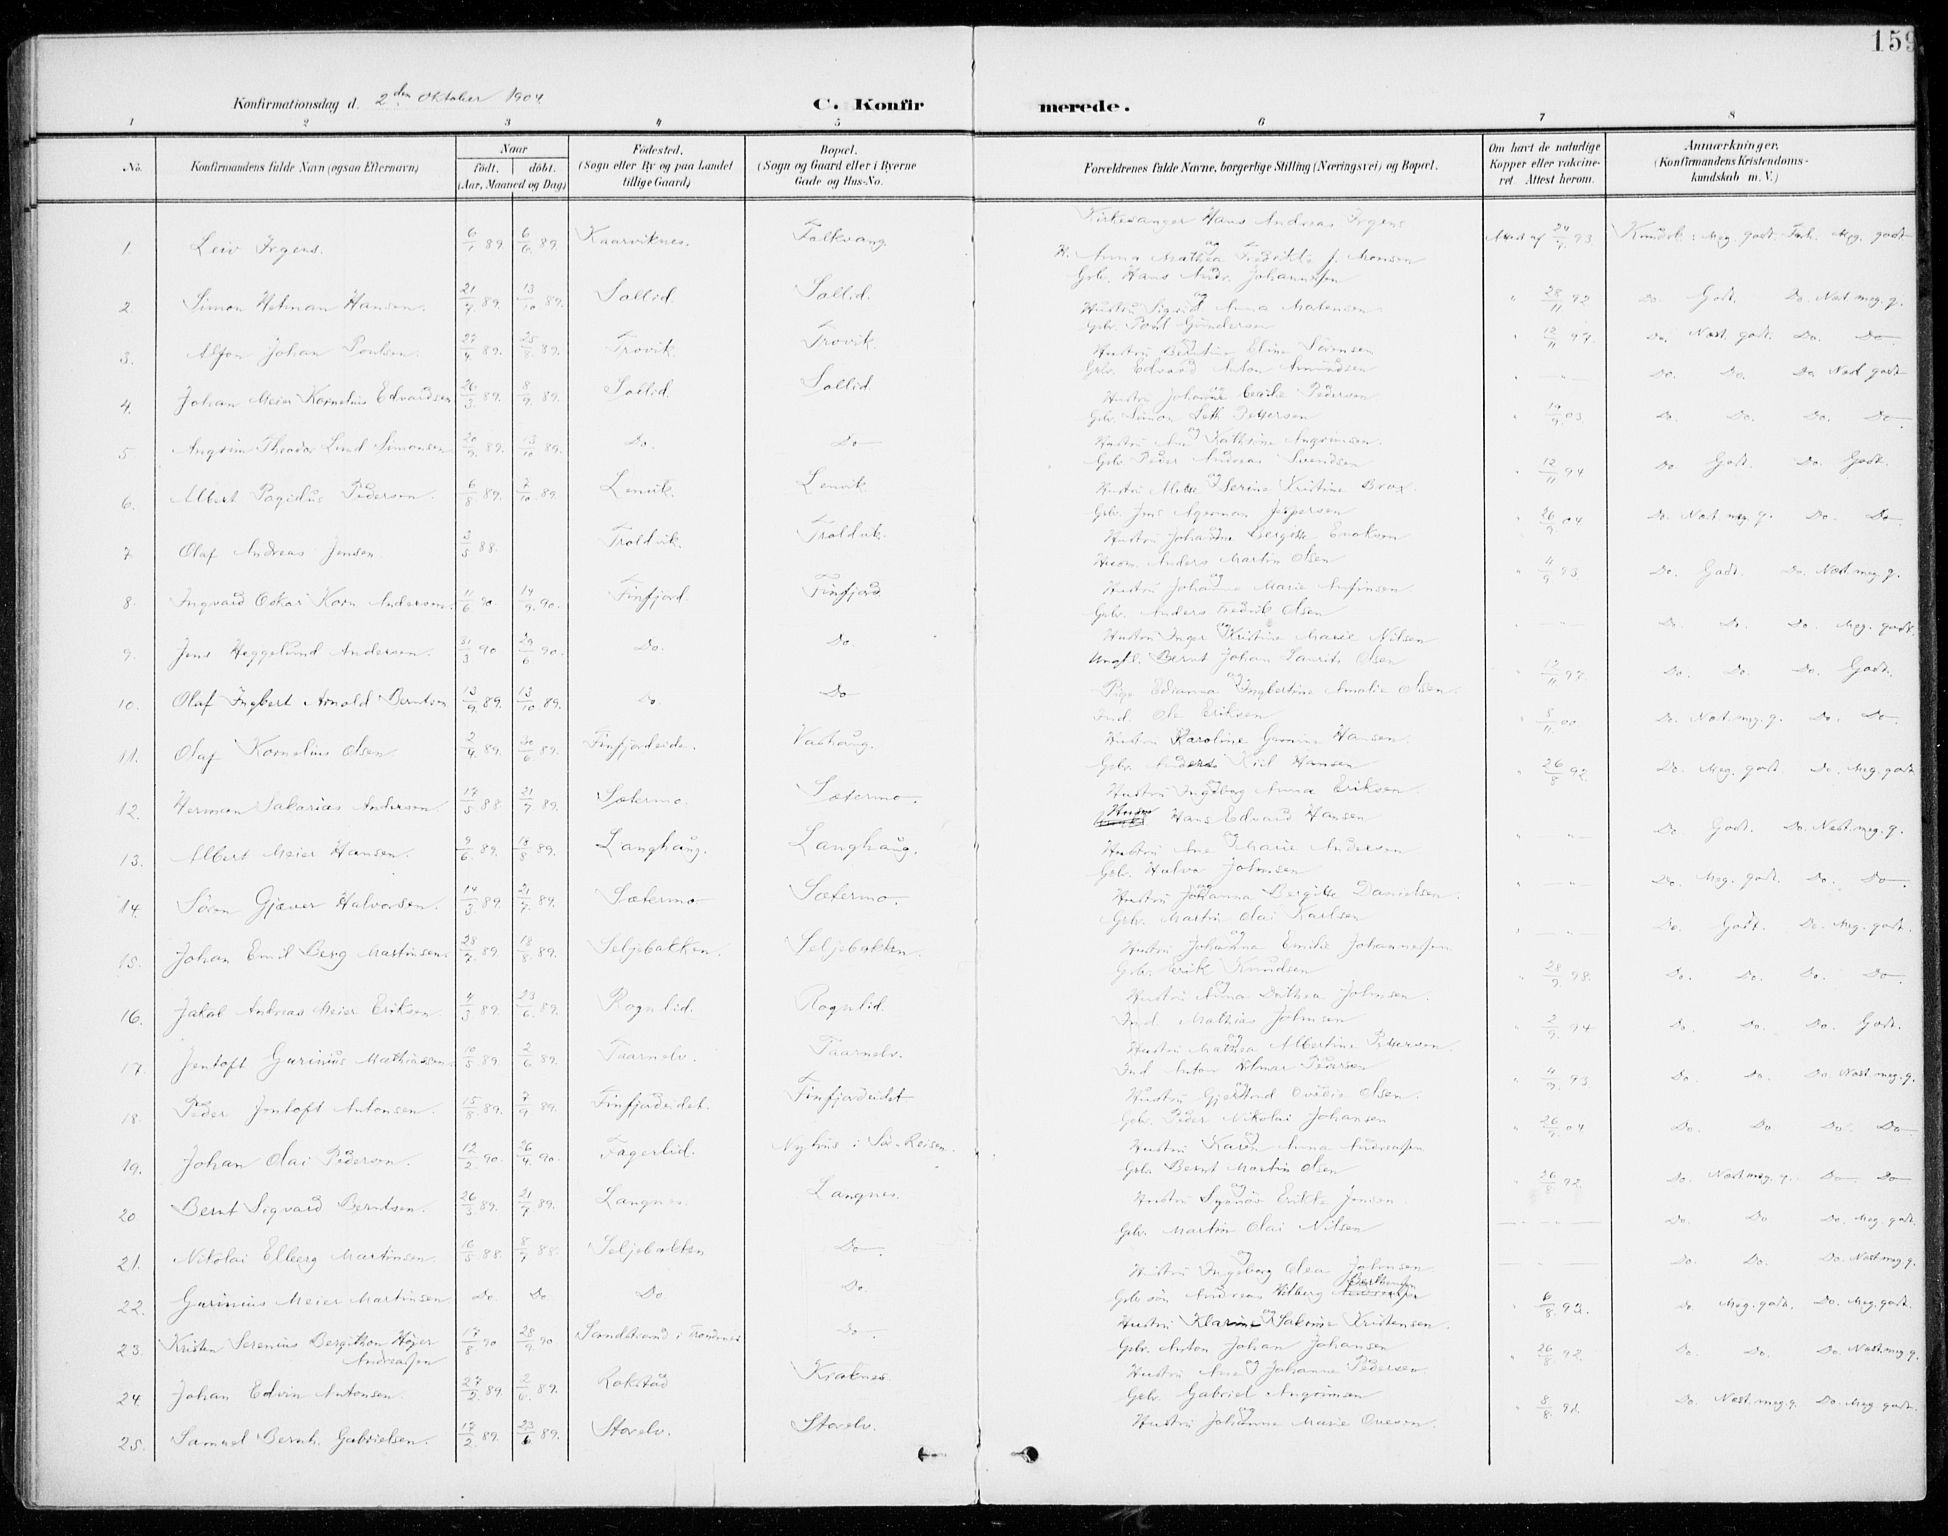 159
Konfirmationsdag d. 2den Oktober 1904
C. Konfirmerede.
1 2 3 4 5 6 7 8
No. Konfirmandens fulde Navn (ogsaa Efternavn) Naar født. døbt. (Aar, Maaned og Dag) Fødested. (Sogn eller By og paa Landet tillige Gaard) Bopæl. (Sogn og Gaard eller i Byerne Gade og Hus-No. Forældrenes fulde Navne, borgerlige Stilling (Næringsvei) og Bopæl. Om havt de naturlige Kopper eller vakcineret Attest herom. Anmærkninger. (Konfirmandens Kristendomskundskab m. V.)
1. Leiv Irgens. 89. 6/6 89. Kaarviknes. Folkvang. Kirkesanger Hans Andreas Irgens
Anna Mathea Fredrikke f. Monsen 93. Meg. godt. Forh. Meg. godt
2 Simon Hansen. 89. 13/10 89. Sollid. Sollid. Gbr. Hans Andr. Johannessen
Hustru Sigrid Anna 28/11 92 Do. Godt. Do. Næst meg. g.
3. Johan Poulsen. 27/4 89. 25/8 89. Trovik. Trovik. Gbr. Poul Gundersen
Hustru Eline Sørensen 12/11 97. Do. Næst godt. Do. Do.
4. Johan Meier Kornelius Edvardsen 26/3 89. 8/9 89. Sollid. Sollid Gbr. Edvard Anton Amundsen
Hustru Johanne Cecilie Pedersen Do. Do. Do. Næst godt
5 Angrim Theodor Lund Simonsen 20/9 89. 13/10 89. Do. Do Gbr. Simon Seth Pettersen
Hustru Ane Kathrine Angrimsen. 19/9 03. Do. Do. Do. Do.
6. Albert Pedersen. 6/8 89. 7/10 89. Lenvik. Lenvik Gbr. Peder Andreas Svendsen
Hustru Serine Kristine Brox. 12/11 94 Do Godt. Do. Godt.
7. Olaf Andreas Jensen. 3/5 88. Troldvik. Troldvik. Gbr. Jens Jespersen
Hustru Johanne Bergitte 26/9 04 Do. Næst meg. g. Do. Do.
8. Ingvard Oskar Korn. Andersen. 11/6 90. 14/9 90. Finfjord. Finfjord Husm. Anders Martin Olsen
Hustru Johanne Marie 4/9 93 Do. Godt. Do. Næst meg. g.
9. Jens Heggelund Andersen. 31/3 90 29/6 90. Do. Do Gbr. Anders Fredrik Olsen
Hustru Inger Kristine Marie Nilsen Do. Do. Do. Meg. godt.
10. Olaf Ingbert Arnold Berntsen 13/9 89. 13/10 89. Do. Do Ungkl. Bernt Johan Laurits Olsen
Pige Edianna Ingbertine Amalie Olsen. 12/11 97. Do. Do. Do. Godt.
11. Olaf Kornelius Olsen. 2/4 89. 30/6 89. Finfjordeide. Vashaug. Ind. Ole Eriksen
Hustru Karoline Hansen. 8/11 00 Do. Næst meg. g. Do. Do.
12. Herman Sakarias Andersen. 17/5 88 21/7 89. Sætermo. Sætermo. Gbr. Anders Kiil Hansen
Hustru Ingeborg Anna Eriksen. 26/8 92. Do. Meg. godt. Do. Meg. godt
13. Albert Meier Hansen. 9/6 89. 18/8 89. Langhaug. Langhaug. Husm. Hans Edvard Hansen
Hustru Ane Marie Andersen Do. Godt. Do. Næst meg. g.
14. Søren Gjæver Halvorsen. 14/3 89. 21/7 89. Sætermo Sætermo. Gbr. Johnsen
Hustru Johanna Bergitte Danielsen. Do. Meg. godt. Do. Do.
15. Johan Emil Berg Martinsen. 28/7 89. 18/8 89. Seljebakken. Seljebakken. Gbr. Martin Olai Karlsen
Hustru Johanna Emilie Johannessen Do. Godt. Do. Meg. godt.
16. Jakob Andreas Meier Eriksen. 4/3 89. 23/6 89. Rognlid. Rognlid. Gbr. Erik Knudsen
Hustru Anna Dorthea Johnsen. 28/9 98. Do. Do. Do. Do.
17. Jentoft Gurinius Mathiassen. 10/5 89. 2/6 89. Taarnelv. Taarnelv. Ind. Mathias Johnsen
Hustru Mathea Albertine Pettersen. 2/9 94 Do. Do. Do. Godt.
18. Peder Jentoft Antonsen. 15/8 89. 7/9 89. Finfjordeidet. Finfjordeidet Ind Anton Hilmar Pedersen
Hustru Gjertrud Ovidie Olsen. 4/9 93 Do. Do. Do. Næst meg. g.
19. Johan Olai Pedersen. 12/2 90. 26/4 90. Fagerlid. Nyhus i Sør-Reisen. Gbr. Peder Nikolai Johansen
Hustru Karen Anna Andreassen 26/9 04 Do. Do Do. Do.
20 Bernt Sigvard Berntsen. 26/3 89. 21/7 89. Langnes. Langnes. Gbr. Bernt Martin Olsen
Hustru Synnøv Erikke Jensen. 26/8 92. Do. Næst meg. g. Do Do
21. Nikolai Elberg Martinsen. 16/5 88. 8/7 88. Seljebakken Do. Gbr. Martin Olai Nilsen Do. Do Do. Meg. godt.
22. Gurinius Meier Martinsen Do. Do. Do Do. Hustru Ingeborg Olea Johnsen Do. Do. Do. Næst meg. g.
23. Kristen Serenius Bergithon Høyer Andreassen 17/8 90 28/9 90 Sandstrand i Trondenes Do. Gbr.søn Andreas Hilberg
Hustru Klarine Sabine Kristensen. 6/8 93. Do Meg. godt. Do. Meg. godt.
24. Johan Edvin Antonsen. 27/2 89. 2/6 89. Rokstad Kraknes. Gbr. Anton Johan Johansen
Hustru Ane Johanne Pedersen 26/8 92. Do. Do. Do. Næst meg. g.
25. Samuel Bernh. Gabrielsen. 17/2 89. 23/6 89. Storelv. Storelv. Gbr. Gabriel Angrimsen
Hustru Johanne Marie 8/8 Do. Næst meg. g. Do. Meg. godt.